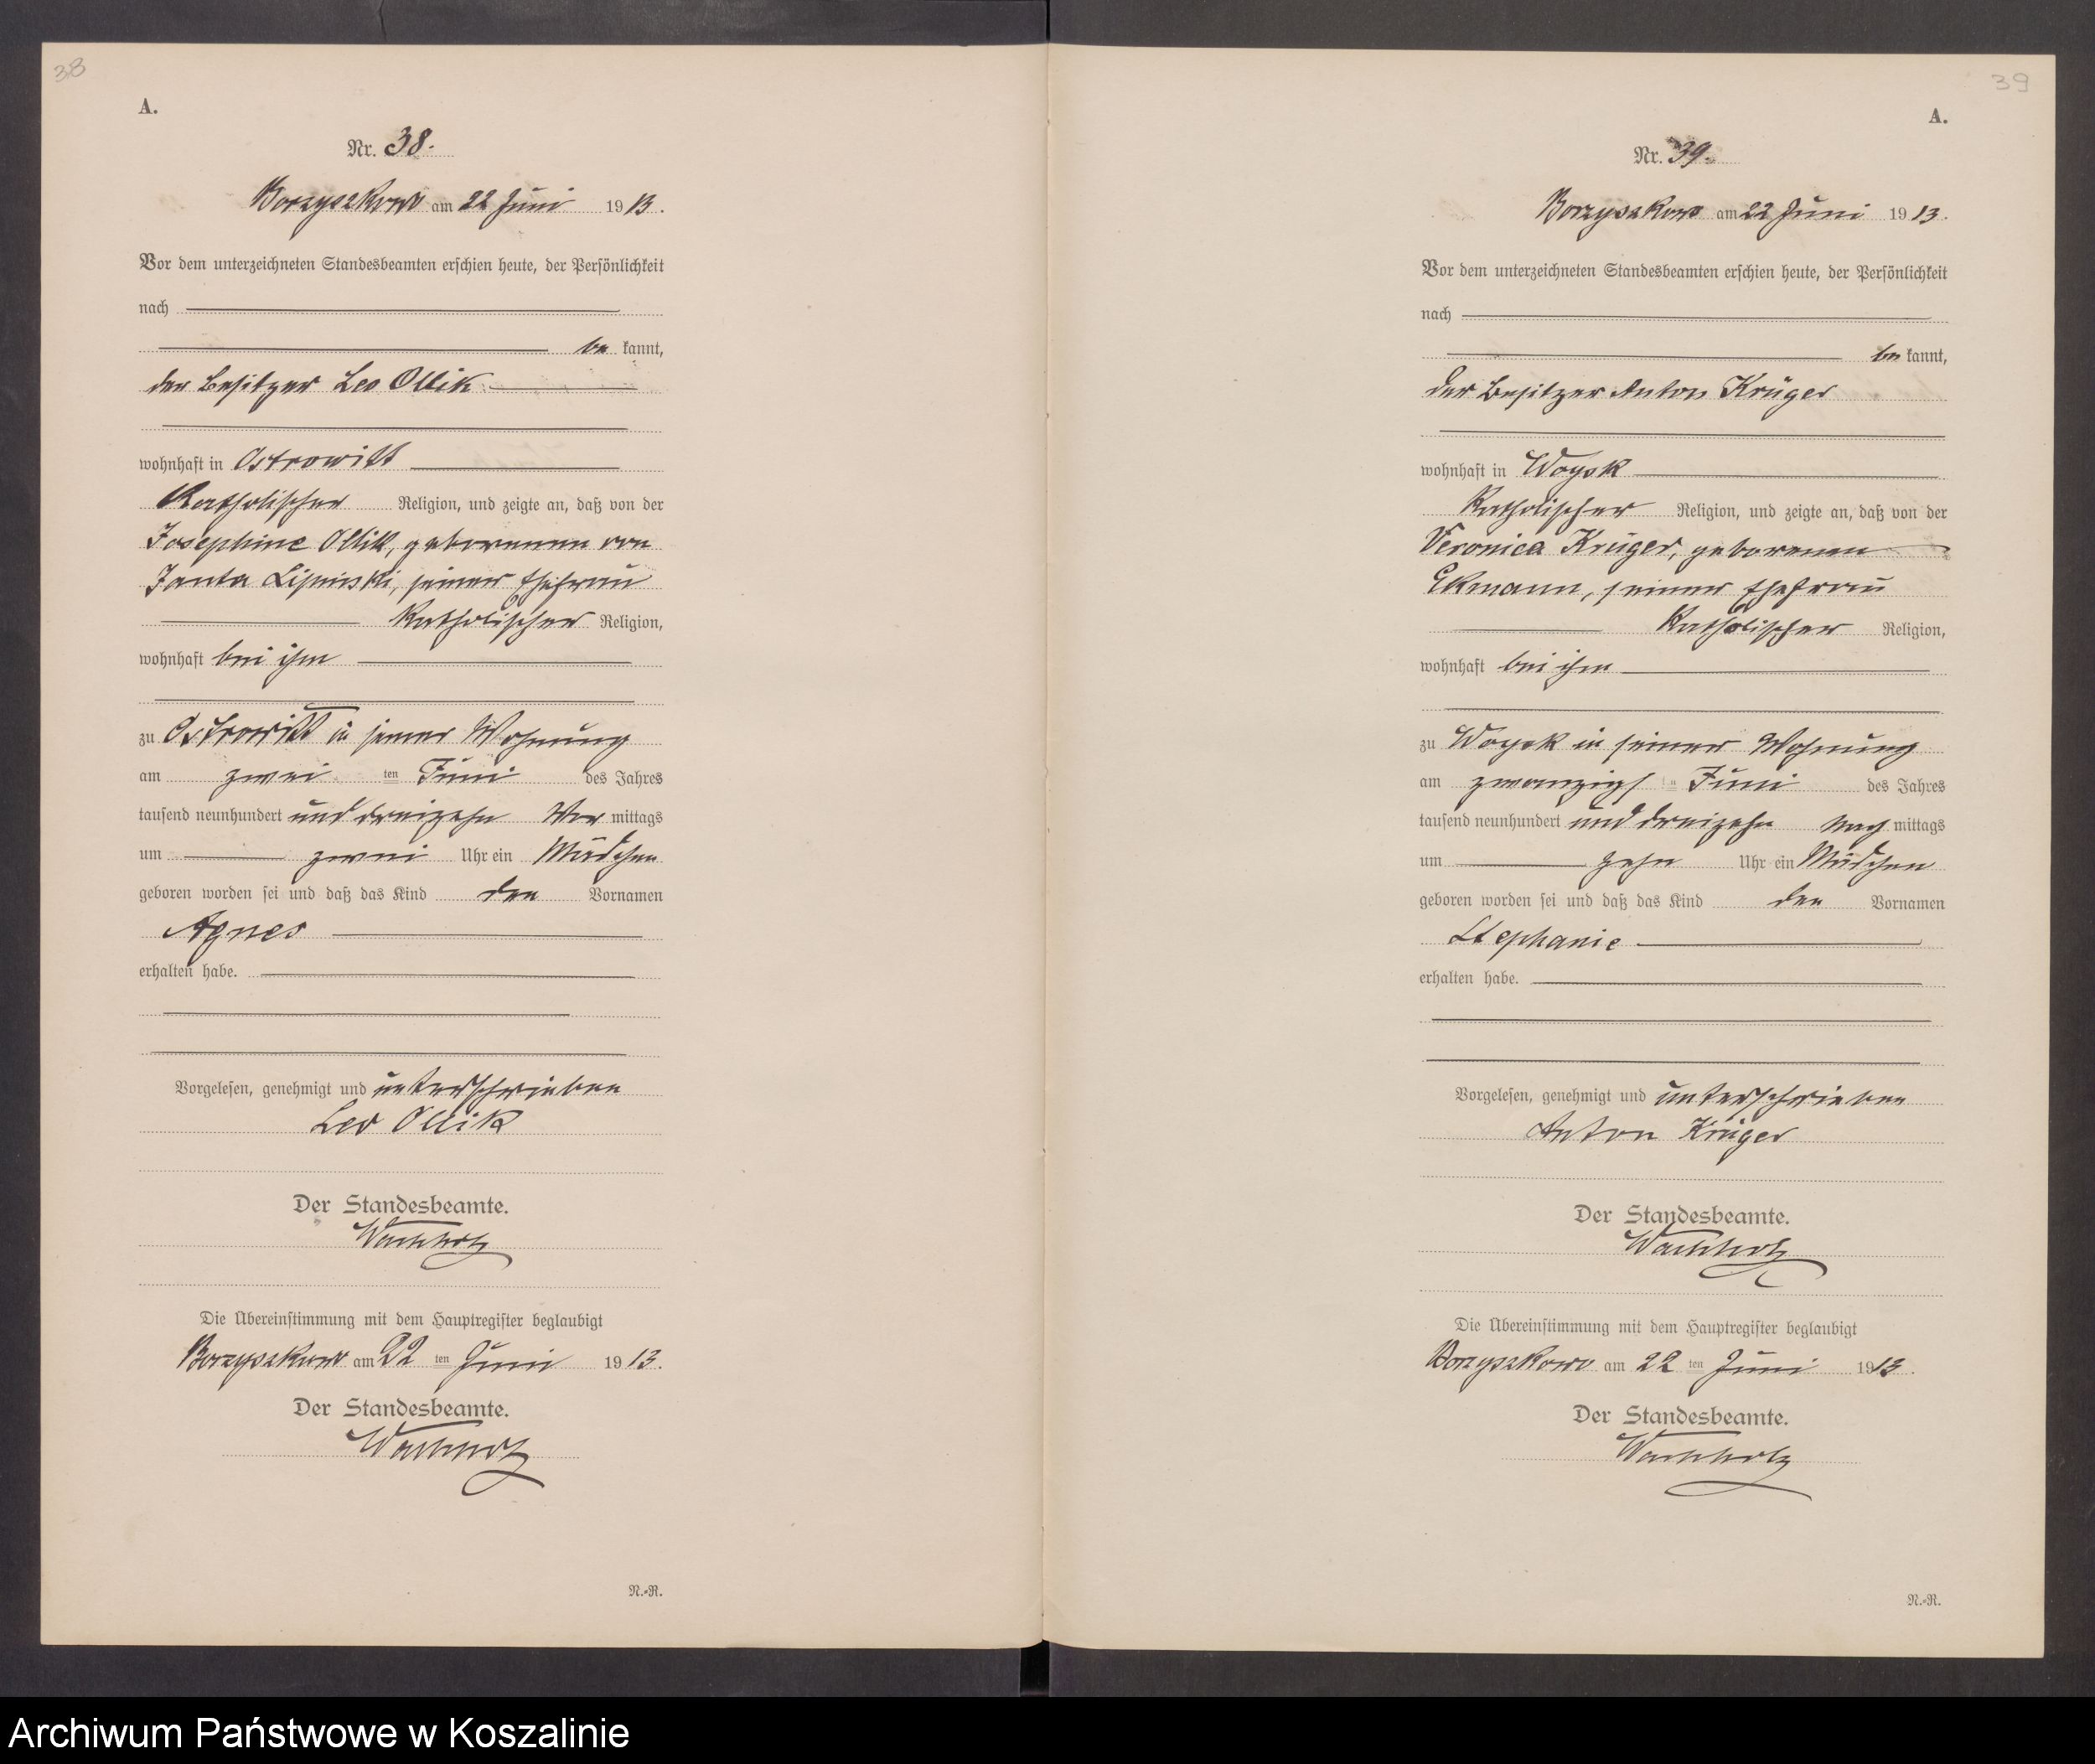 38
A.
Nr. 38.
Borzyszkowo am 22 Juni 1913.
Vor dem unterzeichneten Standesbeamten erschien heute, der Persönlichkeit
nach
be kannt,
der Besitzer Leo Ollik
wohnhaft in Ostrowitt
katholischer Religion, und zeigte an, daß von der
Josephine Ollik, geborenen von
Janta Lipinski, seiner Ehefrau
katholischer Religion,
wohnhaft bei ihm
zu Ostrowitt in seiner Wohnung
am zwei ten Juni des Jahres
tausend neunhundert und dreizehn Vor mittags
um zwei Uhr ein Mädchen
geboren worden sei und daß das Kind den Vornamen
Agnes
erhalten habe.
Vorgelesen, genehmigt und unterschrieben
Leo Ollik
Der Standesbeamte.
Wachholz
Die Übereinstimmung mit dem Hauptregister beglaubigt
Borzyszkowo am 22 ten Juni 1913.
Der Standesbeamte.
Wachholz
N.-R.
39
A.
Nr. 39.
Borzyszkowo am 22 Juni 1913.
Vor dem unterzeichneten Standesbeamten erschien heute, der Persönlichkeit
nach
be kannt,
der Besitzer Anton Krüger
wohnhaft in Woysk
katholischer Religion, und zeigte an, daß von der
Veronica Krüger, geborenen
Ekmann, seiner Ehefrau
katholischer Religion,
wohnhaft bei ihm
zu Woysk in seiner Wohnung
am zwanzigs ten Juni des Jahres
tausend neunhundert und dreizehn Nach mittags
um zehn Uhr ein Mädchen
geboren worden sei und daß das Kind den Vornamen
Stephanie
erhalten habe.
Vorgelesen, genehmigt und unterschrieben
Anton Krüger
Der Standesbeamte.
Wachholz
Die Übereinstimmung mit dem Hauptregister beglaubigt
Borzyszkowo am 22 ten Juni 1913.
Der Standesbeamte.
Wachholz
N.-R.
Archiwum Państwowe w Koszalinie